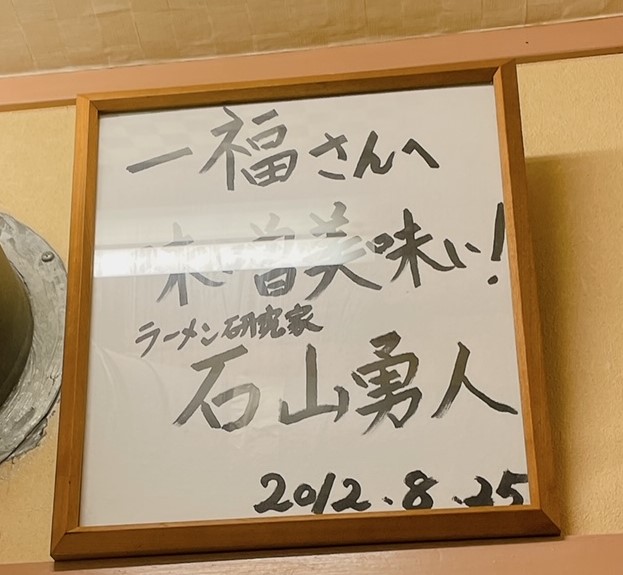 一福さんへ
味噌美味い!
ラーメン研究家
石山勇人
2012.8.25